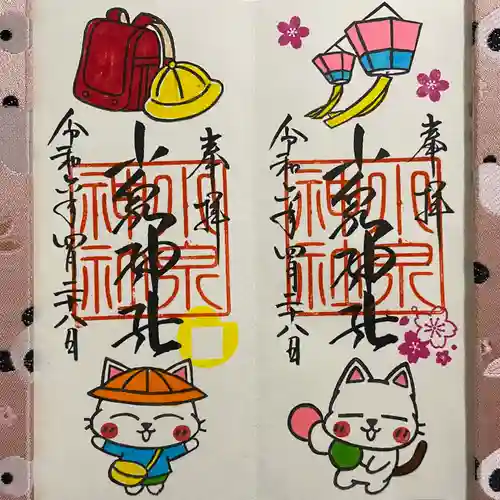 奉拝
小泉神社
小泉
神社
令和六年四月二十八日
奉拝
小泉神社
小泉
神社
令和六年四月二十八日